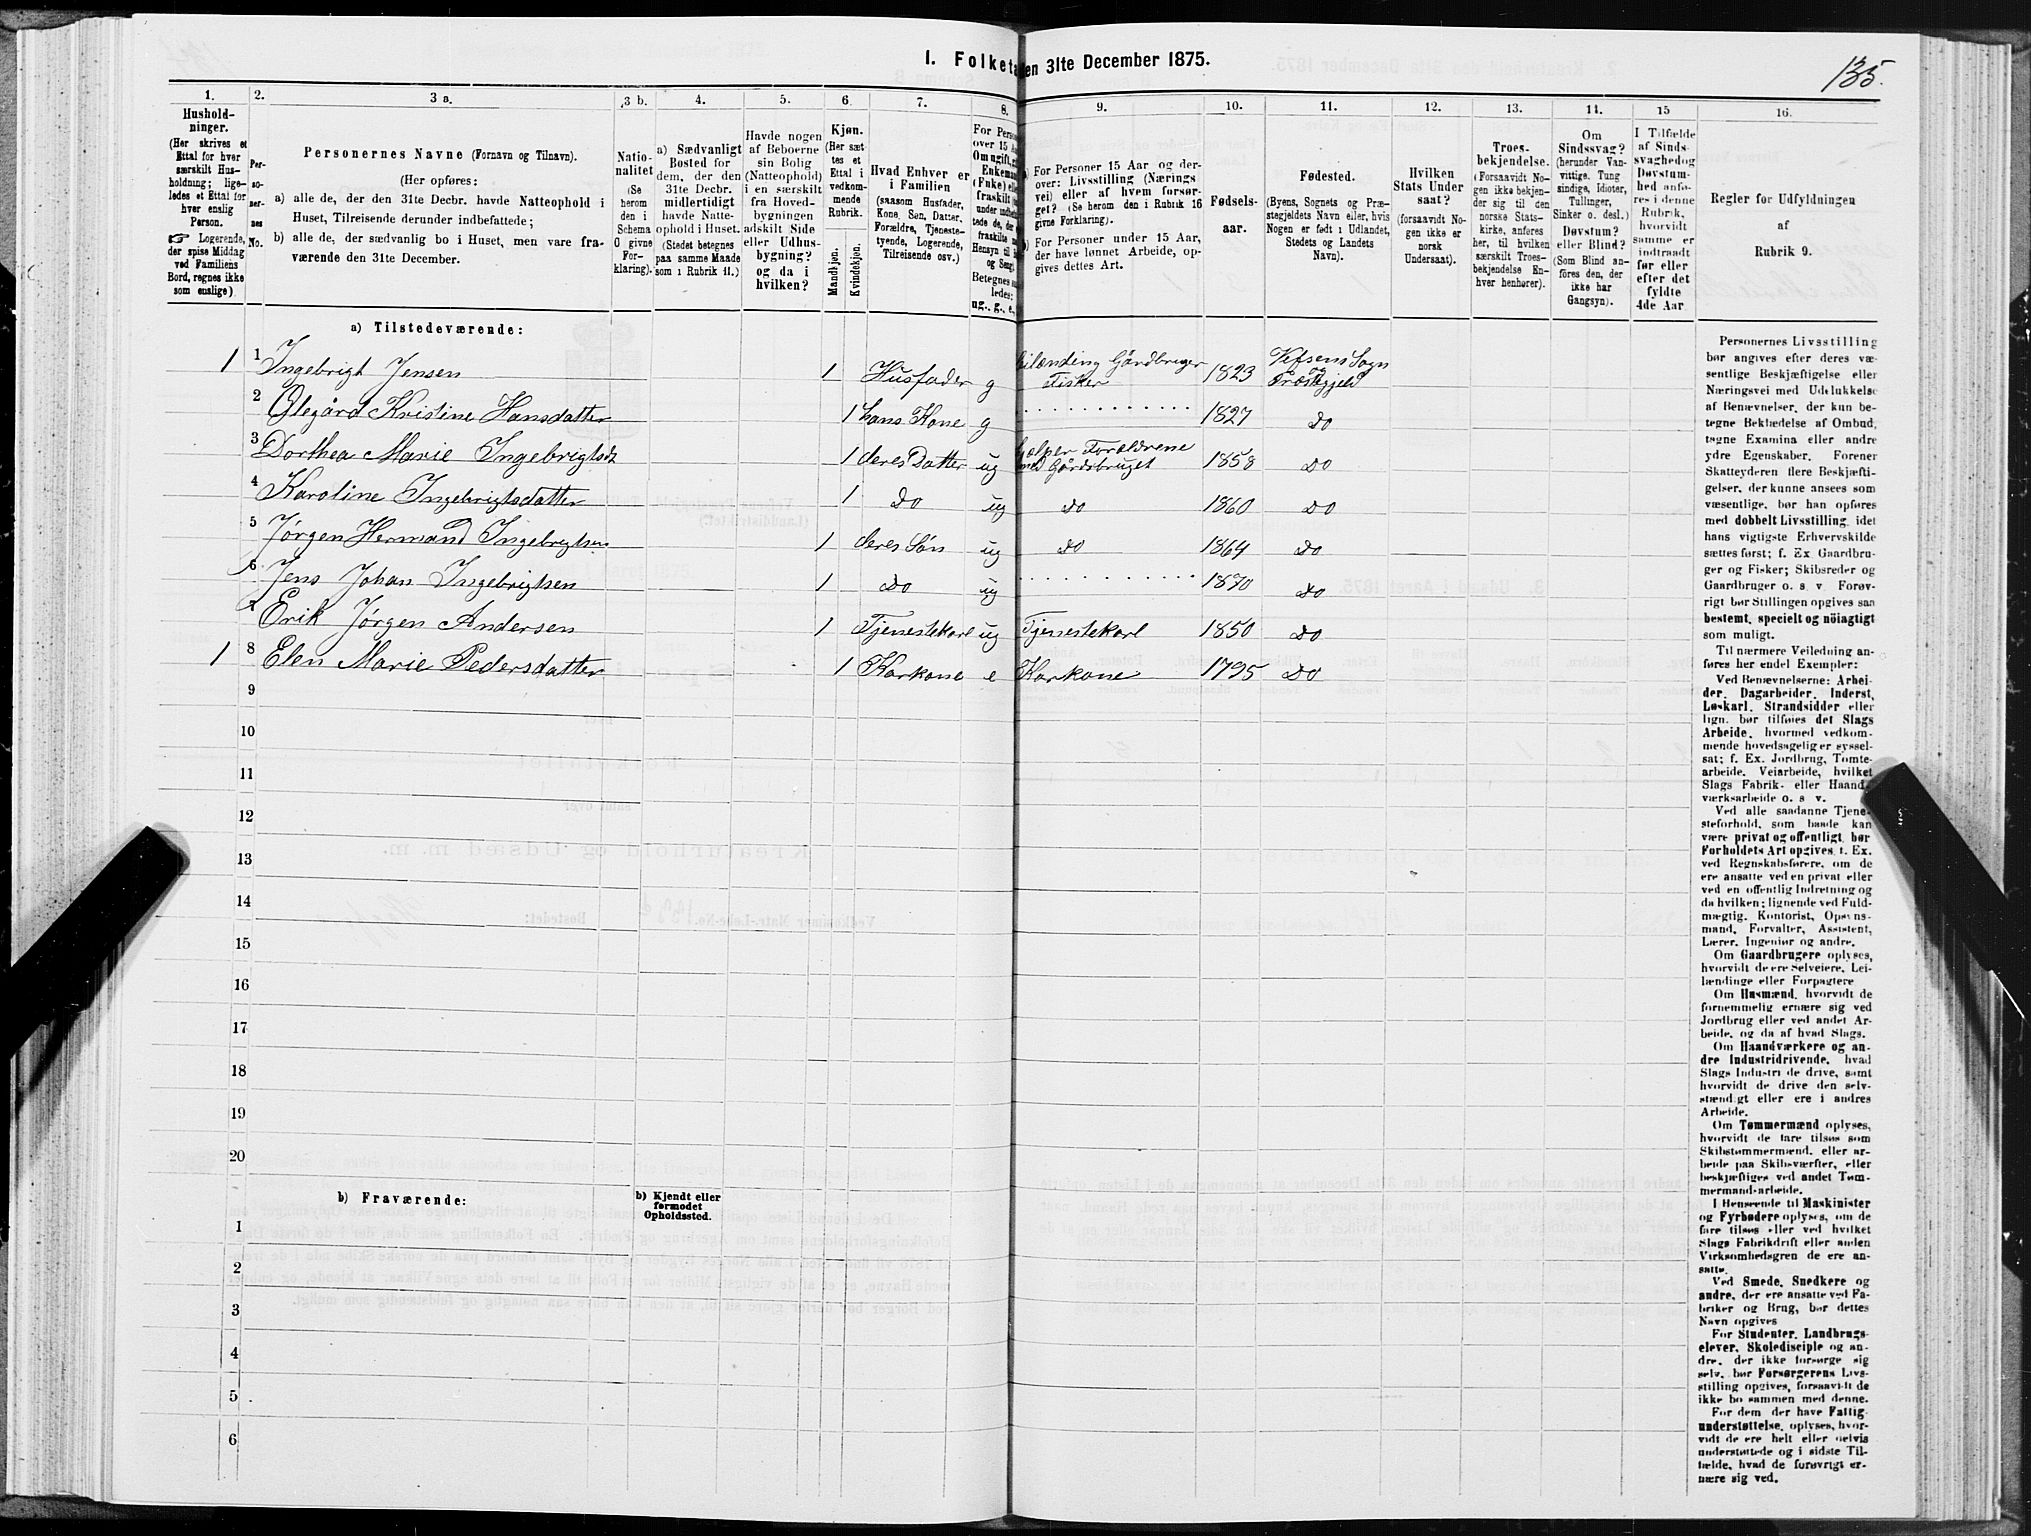 135.
I. Folketa
den 31te December 1875.
1. 2. 3 a. 3 b. 4. 5. 6. 7. 8. 9. 10. 11. 12. 13. 14. 15 16.
Hushold-
ninger.
(Her skrives et
Ettal for hver
særskilt Hus-
holdning; lige-
ledes et Ettal for
hver enslig
Person.
☞ Logerende,
der spise Middag
ved Familiens
Bord, regnes ikke
som enslige).
Per-
so-
ner-
nes
No.
Personernes Navne (Fornavn og Tilnavn).
(Her opføres:
a) alle de, der den 31te Decbr. havde Natteophold i
Huset, Tilreisende derunder indbefattede;
b) alle de, der sædvanlig bo i Huset, men vare fra-
værende den 31te December.
Natio-
nalitet
(Se
herom
den i
Schema
O givne
For-
klaring).
a) Sædvanligt
Bosted for
dem, der den
31te Decbr.
midlertidigt
havde Natte-
ophold i Huset.
(Stedet betegnes
paa samme Maade
som i Rubrik 11.)
Havde nogen
af Beboerne
sin Bolig
(Natteophold)
i en særskilt
fra Hoved-
bygningen
adskilt Side
eller Udhus-
bygning?
og da i
hvilken?
Kjøn.
(Her sæt-
tes et
Ettal i
vedkom-
mende
Rubrik.
Mandkjøn.
Kvindekjøn.
Hvad Enhver er
i Familien
(saasom Husfader,
Kone, Søn, Datter,
Forældre, Tjeneste-
tyende, Logerende,
Tilreisende osv.)
For Perso
over 15 Aa
Om ugift, gi
Enkeman
(Fnke) elle
fraskilt
ledes:
ug., g., e,
a) For Personer 15 Aar og der-
over: Livsstilling (Nærings
vei) eller af hvem forsør-
get? (Se herom den i Rubrik 16
givne Forklaring).
b) For Personer under 15 Aar,
der have lønnet Arbeide, op-
gives dettes Art.
Fødsels-
aar.
Fødested.
(Byens, Sognets og Præ-
stegjeldets Navn eller, hvis
Nogen er født i Udlandet,
Stedets og Landets
Navn).
Hvilken
Stats Under
saat?
(forsaavidt No-
gen ikke er
norsk
Undersaat).
Troes-
bekjendelse.
(Forsaavidt No-
gen ikke bekjen-
der sig til den
norske Stats-
kirke, anføres
her, til hvilken
særskilt Troes-
bekjendelse En-
hver henhører).
Om
Sindssvag?
(herunder Van-
vittige, Tung
sindige, Idioter,
Tullinger,
Sinker o. desl.)
Døvstum?
eller Blind?
(Som Blind an-
føres den, der
ikke har
Gangsyn).
I Tilfælde
af Sinds-
svaghed og
Døvstum-
hed anfø-
res i denne
Rubrik,
hvorvidt
samme er
indtraadt
før eller
efter det
fyldte
4de Aar.
Regler for Udfyldningen
af
Rubrik 9.
a) Tilstedeværende:
1 1 Ingebrigt Jensen 1 Husfader g Leilænding Gårdbruger Fisker 1823 Vefsens Sogn og Præstegjeld
2 Olegård Kristine Hansdatter 1 hans Kone g 1827 Do
3 Dorthea Marie Ingebrigtsdt 1 deres Datter ug hjælper Forældrene med Gårdsbruget 1858 Do
4 Karoline Ingebrigtsdatter 1 Do ug Do 1860 Do
5 Jørgen Hermand Ingebrigtsen 1 deres Søn ug Do 1864 Do
6 Jens Johan Ingebrigtsen 1 Do ug 1870 Do
7 Erik Jørgen Andersen 1 Tjenestekarl ug Tjenestekarl 1850 Do
1 8 Elen Marie Pedersdatter 1 Karkone e Karkone 1795 Do
9
10
11
12
13
14
15
16
17
18
19
20
b) Fraværende:
b) Kjendt eller
formodet
Opholdssted.
1
2
3
4
5
6
Personernes Livsstilling
bør angives efter deres væ-
sentlige Beskjæftigelse eller
Næringsvei med Udelukkelse
af Benævnelser, der kun be-
tegne Beklædelse af Ombud,
tagne Examina eller andre
ydre Egenskaber. Forener
Skatteyderen flere Beskjæfti-
gelser, der kunne ansees som
væsentlige, bør han opføres
med dobbelt Livsstilling, idet
hans vigtigste Erhvervskilde
sættes først; f. Ex. Gaardbru-
ger og Fisker; Skibsreder og
Gaardbruger o. s. v. Forøv-
rigt bør Stillingen opgives saa
bestemt, specielt og nöiagtigt
som muligt.
Til nærmere Veiledning an-
føres her endel Exempler:
Ved Benævnelserne: Arbei-
der, Dagarbeider, Inderst,
Løskarl, Strandsidder eller
lign. bør tilføies det Slags
Arbeide, hvormed vedkom-
mende hovedsagelig er syssel-
sat; f. Ex. Jordbrug, Tomte-
arbeide, Veiarbeide, hvilket
Slags Fabrik- eller Haand-
værksarbeide o. s. v.
Ved alle saadanne Tjene-
steforhold, som baade kan
være privat og offentligt, bør
Forholdets Art opgives, f. Ex.
ved Regnskabsførere, om de
ere ansatte ved en privat eller
ved en offentlig Indretning og
da hvilken; lignende ved Fuld-
mægtig, Kontorist, Opsyns-
mand, Forvalter, Assistent,
Lærer, Ingeniør og andre.
Om Gaardbrugere oplyses,
hvorvidt de ere Selveiere, Lei-
lændinge eller Forpagtere
Om Husmænd, hvorvidt de
fornemmelig ernære sig ved
Jordbrug eller ved andet Ar-
beide, og da af hvad Slags.
Om Haandværkere og an-
dre Industridrivende, hvad
Slags Industri de drive, samt
hvorvidt de drive den selv-
stændigt eller ere i andres
Arbeide.
Om Tømmermænd oplyses,
hvorvidt de fare tilsøs som
Skibstømmermænd, eller ar-
beide paa Skibsværfter, eller
beskjæftiges ved andet Tøm-
mermandsarbeide.
I Henseende til Maskinister
og Fyrbødere oplyses, om de
fare tilsøs eller ved hvilket
Slags Fabrikdrift eller anden
Virksomhedsgren de ere an-
satte.
Ved Smede, Snedkere og
andre, der ere ansatte ved Fa-
briker og Brug, bør dettes
Navn opgives
For Studenter, Landbrugs-
elever, Skoledisciple og an-
dre, der ikke forsørge sig
selv, bør Forsørgerens Livs-
stilling opgives, forsaavidt de
ikke bo sammen med denne.
For dem, der have Fattig-
understøttelse, oplyses, hvor-
vidt de ere helt eller delvis
understøttede og i sidste Til-
fælde, hvad de forøvrigt er-
nære sig ved.